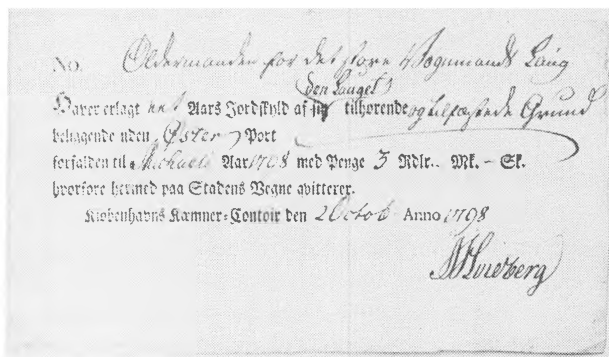 No. Oldermanden for det store Vognmands Laug
den Lauget
Haver erlagt et Aars Jordskyld af sin tilhørende og tilfæstede Grund
beliggende uden Øster Port
forfalden til Michaeli Aar 1798 med Penge 3 Rdlr. Mk. – Sk.
hvorfore hermed paa Stadens Vegne qvitterer.
Kiøbenhavns Kæmner-Contoir den 2 Octob Anno 1798
Hvidberg